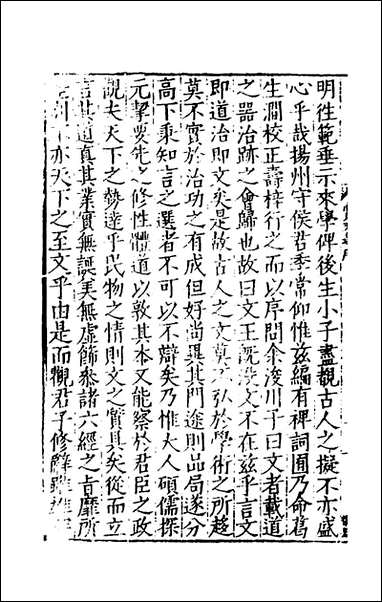 明往範垂示來學俾後生小子盡觀古人之擬不亦盛
心乎哉揚州守侯君季常仰惟茲編有裨詞囿乃命葛
生澗校正壽梓行之而以序問余浚川子曰文者載道
之器治跡之會歸也故曰文王旣沒文不在茲乎言文
即道治即文矣是故古人之文莫不弘於學術之所趍
莫不實於治功之有成但好尚異其門途則品局遂分
高下秉知言之選者不可以不辯矣乃惟大人碩儒探
元挈要先之修性體道以敦其本又能察於君臣之政
覩夫天下之勢達乎民物之情則文之實具矣從而立
言其道真其業實無誕美無虛飾叅諸六經之旨靡所
亦天下之至文乎由是而觀君子修辭